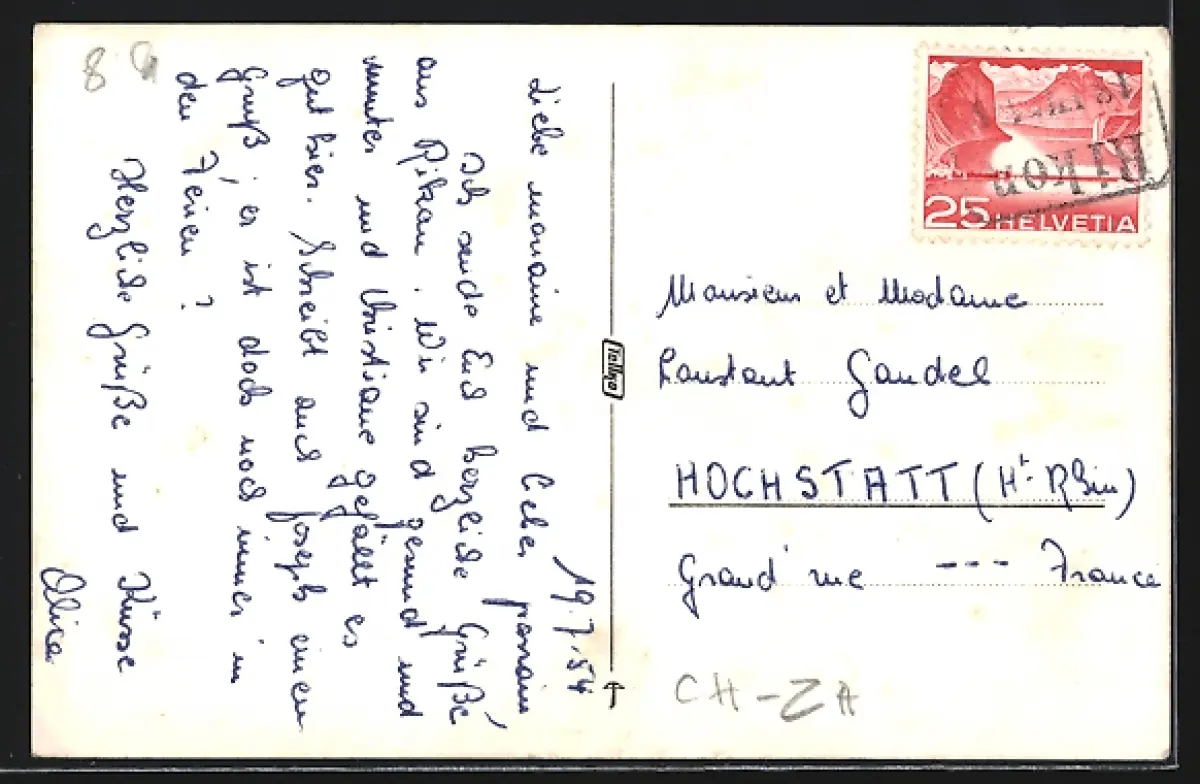 19.7.54
Liebe marraine und lieber parrain,
Ich sende Euch herzliche Grüße
aus Rikon. Wir sind gesund und
munter und Christiane gefällt es
gut hier. Schreibt auch Joseph einen
Gruß, er ist doch noch immer in
den Ferien?
Herzliche Grüße und Küsse
Alice
8
25 HELVETIA
RIKON
Monsieur et Madame
Constant Gandel
HOCHSTATT (Ht-Rhin)
Grand'rue --- France
CH-ZH